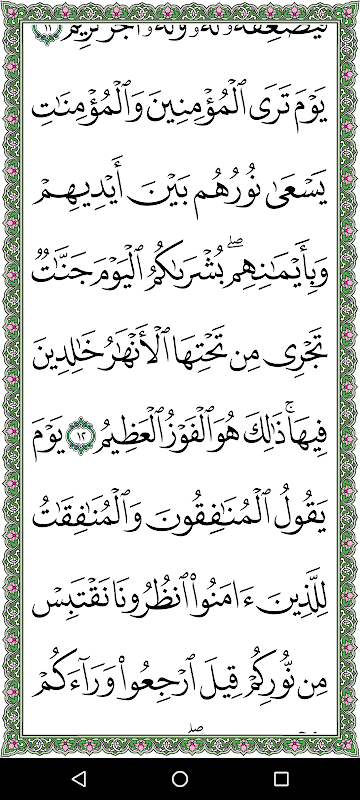 فَيُضَٰعِفَهُۥ لَهُۥ وَلَهُۥٓ أَجْرٌ كَرِيمٌ ١١
يَوْمَ تَرَى ٱلْمُؤْمِنِينَ وَٱلْمُؤْمِنَٰتِ
يَسْعَىٰ نُورُهُم بَيْنَ أَيْدِيهِمْ
وَبِأَيْمَٰنِهِمۖ بُشْرَىٰكُمُ ٱلْيَوْمَ جَنَّٰتٌ
تَجْرِى مِن تَحْتِهَا ٱلْأَنْهَٰرُ خَٰلِدِينَ
فِيهَاۚ ذَٰلِكَ هُوَ ٱلْفَوْزُ ٱلْعَظِيمُ ١٢ يَوْمَ
يَقُولُ ٱلْمُنَٰفِقُونَ وَٱلْمُنَٰفِقَٰتُ
لِلَّذِينَ ءَامَنُوا۟ ٱنظُرُونَا نَقْتَبِسْ
مِن نُّورِكُمْ قِيلَ ٱرْجِعُوا۟ وَرَآءَكُمْ